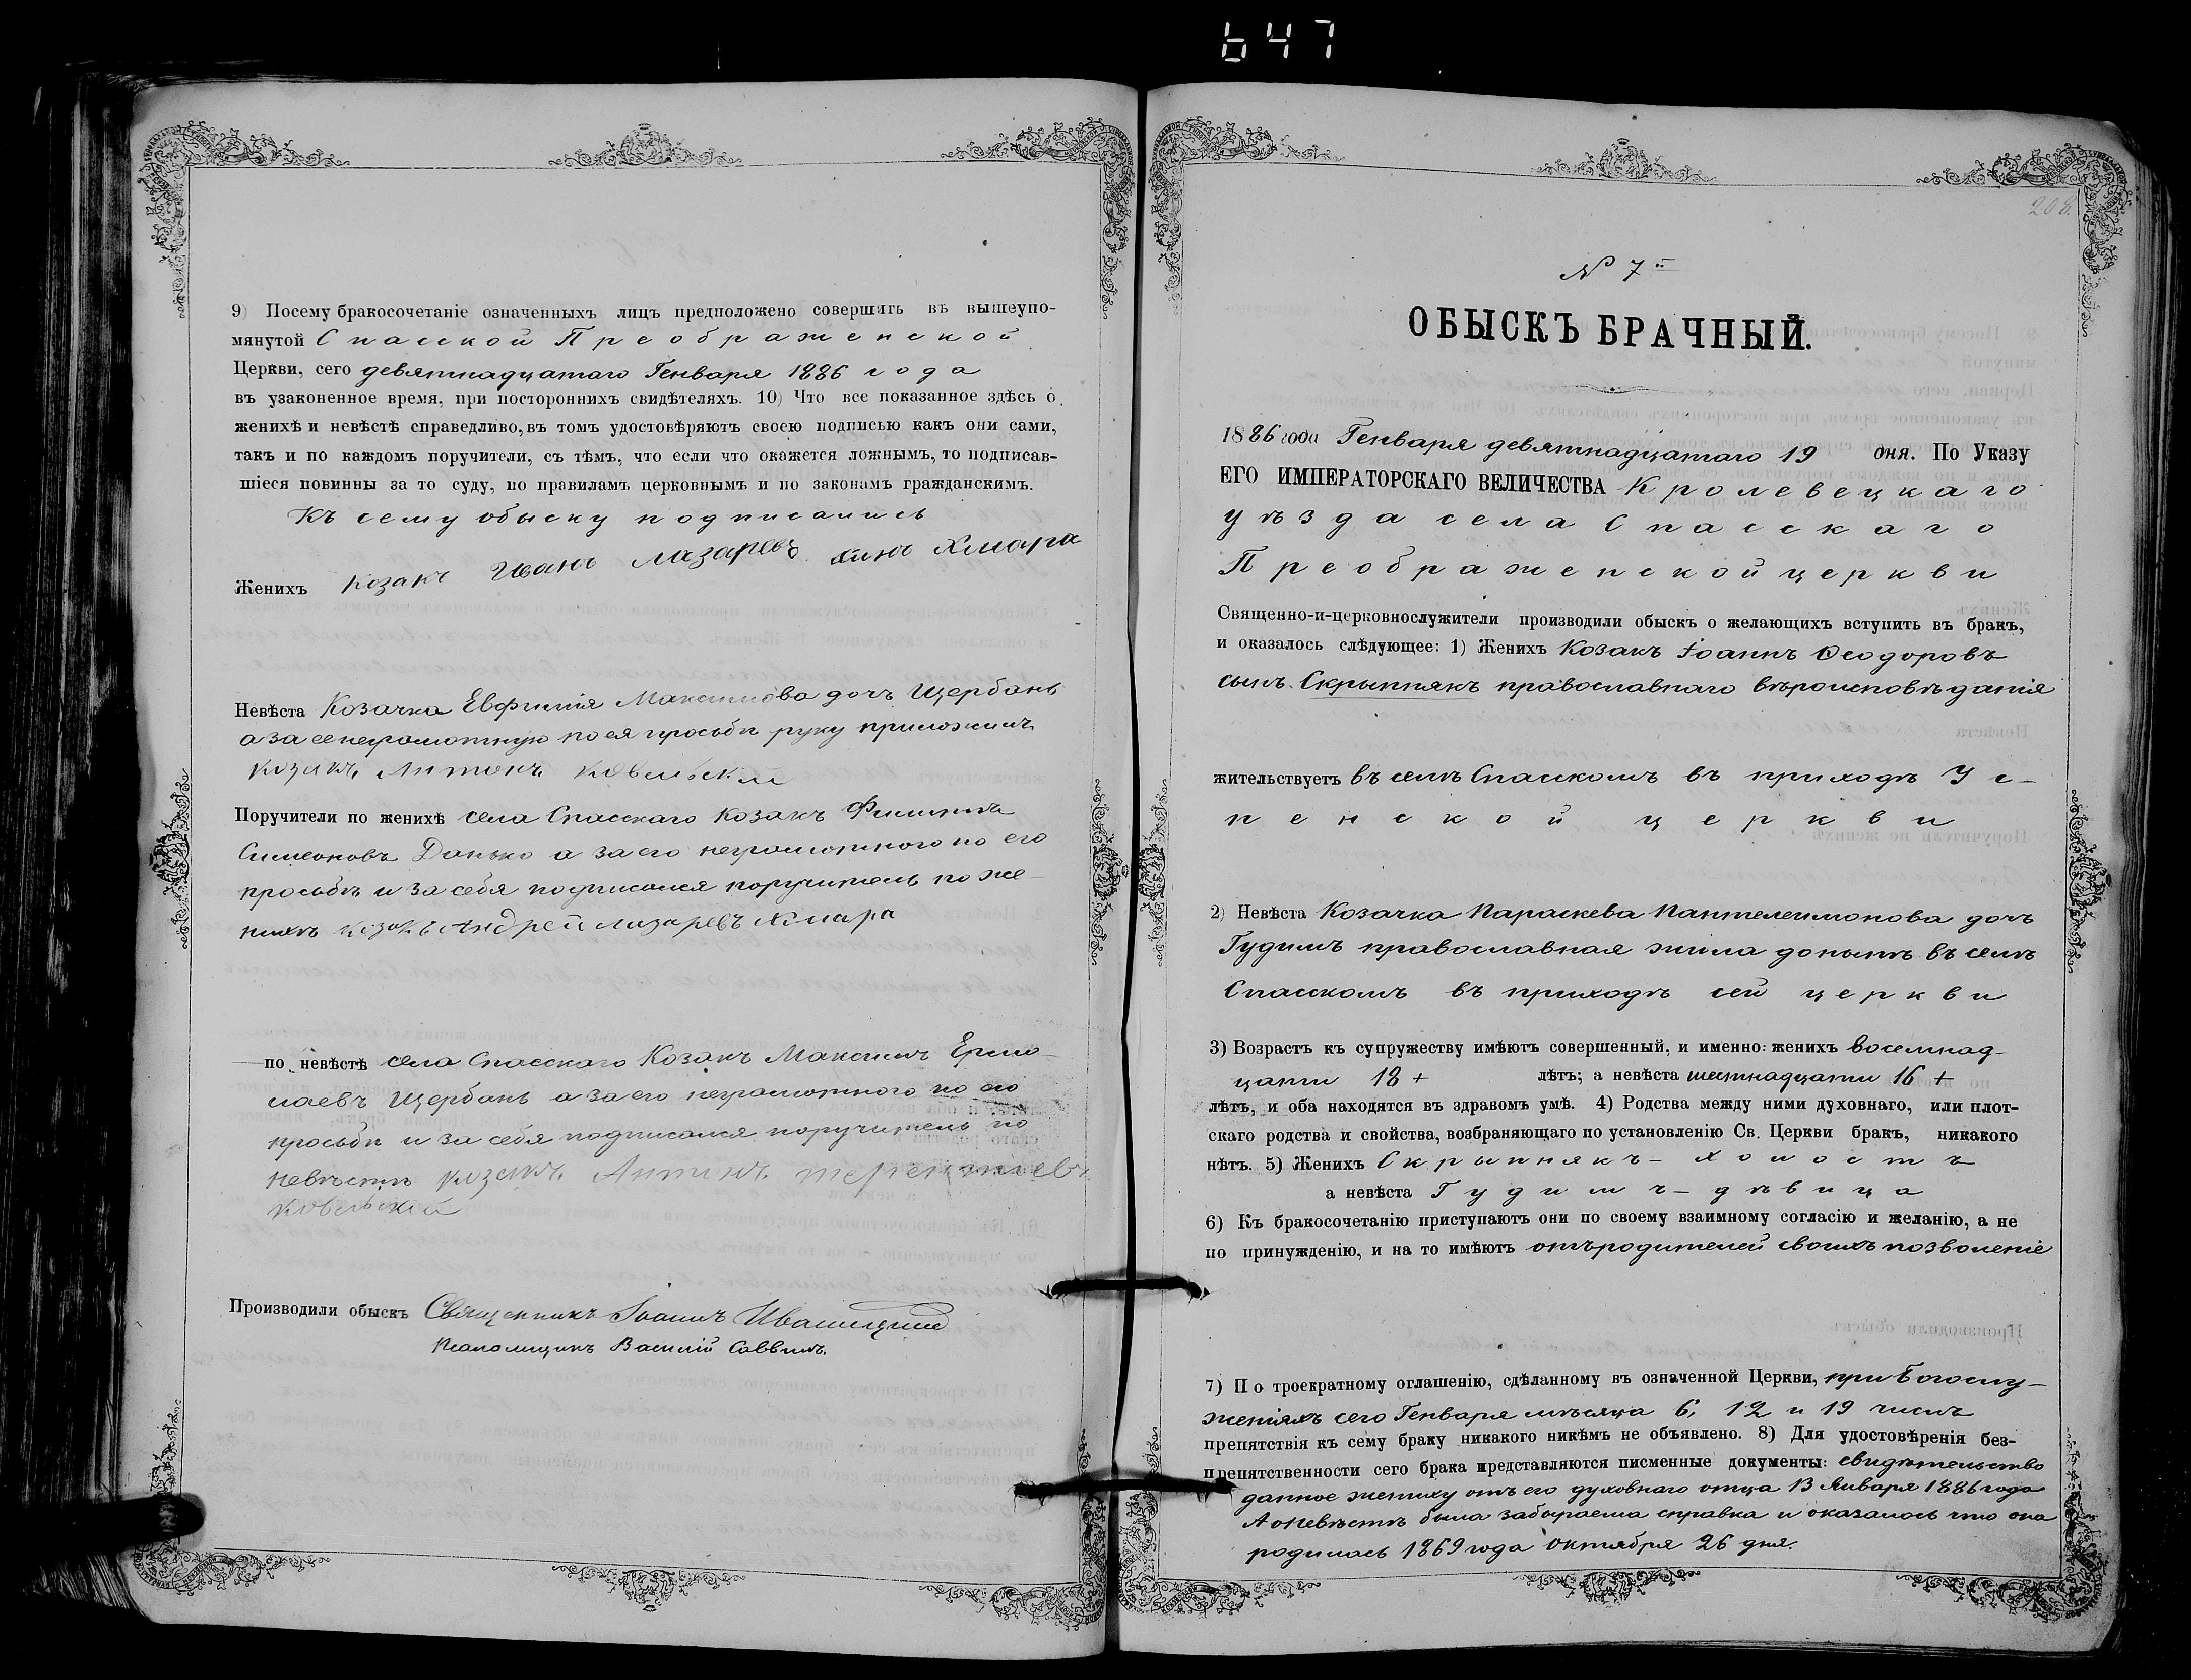 647
9) Посему бракосочетаніе означенныхъ лицъ предположено совершить въ вышеупо-
мянутой Спасской Преображенской
Церкви, сего девятнадцатаго Генваря 1886 года
въ узаконенное время, при постороннихъ свидѣтеляхъ. 10) Что все показанное здѣсь о
женихѣ и невѣстѣ справедливо, въ томъ удостовѣряютъ своею подписью какъ они сами,
такъ и по каждомъ поручители, съ тѣмъ, что если что окажется ложнымъ, то подписав-
шіеся повинны за то суду, по правиламъ церковнымъ и по законамъ гражданскимъ.
Къ сему обыску подписались
Женихъ козакъ Иванъ Лазаревъ сынъ Хмара
Невѣста Козачка Евфимія Максимова дочь Щербань
а за ее неграмотную по ея просьбѣ руку приложилъ
козакъ Антонъ Ковельскій
Поручители по женихѣ села Спасскаго Козакъ Филиппъ
Симеоновъ Данько а за его неграмотного по его
просьбѣ и за себя подписался поручитель по же-
нихѣ козакъ Андрей Лазаревъ Хмара
по невѣстѣ села Спасскаго Козакъ Максимъ Ермо-
лаевъ Щербань а за его неграмотного по его
просьбѣ и за себя подписался поручитель по
невѣстѣ козакъ Антонъ Терентиевъ
Ковельскій
Производили обыскъ Священникъ Іоаннъ Ивашицкій
Псаломщикъ Василій Саввичъ.
208.
№ 7й
ОБЫСКЪ БРАЧНЫЙ.
1886 года Генваря девятнадцатаго 19 дня. По Указу
ЕГО ИМПЕРАТОРСКАГО ВЕЛИЧЕСТВА Кролевецкаго
уѣзда села Спасскаго
Преображенской церкви
Священно-и-церковнослужители производили обыскъ о желающихъ вступить въ бракъ,
и оказалось слѣдующее: 1) Женихъ Козакъ Іоаннъ Ѳеодоровъ
сынъ Скрыпнякъ православнаго вѣроисповѣданія
жительствуетъ въ селѣ Спасскомъ въ приходѣ Ус-
пенской церкви
2) Невѣста Козачка Параскева Пантелеимонова дочь
Гудимъ православная жила донынѣ въ селѣ
Спасскомъ въ приходѣ сей церкви
3) Возрастъ къ супружеству имѣютъ совершенный, и именно: женихъ восемнад-
цати 18 + лѣтъ; а невѣста шестнадцати 16 +
лѣтъ, и оба находятся въ здравомъ умѣ. 4) Родства между ними духовнаго, или плот-
скаго родства и свойства, возбраняющаго по установленію Св. Церкви бракъ, никакого
нѣтъ. 5) Женихъ Скрыпнякъ - холостъ
а невѣста Гудимъ - дѣвица
6) Къ бракосочетанію приступаютъ они по своему взаимному согласію и желанію, а не
по принужденію, и на то имѣютъ отъ родителей своихъ позволеніе
7) По троекратному оглашенію, сдѣланному въ означенной Церкви, при Богослу-
женіяхъ сего Генваря мѣсяца 6, 12 и 19 чиселъ
препятствія къ сему браку никакого никѣмъ не объявлено. 8) Для удостовѣренія без-
препятственности сего брака представляются писменные документы: свидѣтельство
данное жениху отъ его духовнаго отца 13 Января 1886 года
А о невѣстѣ была забираема справка и оказалось что она
родилась 1869 года Октября 26 дня.